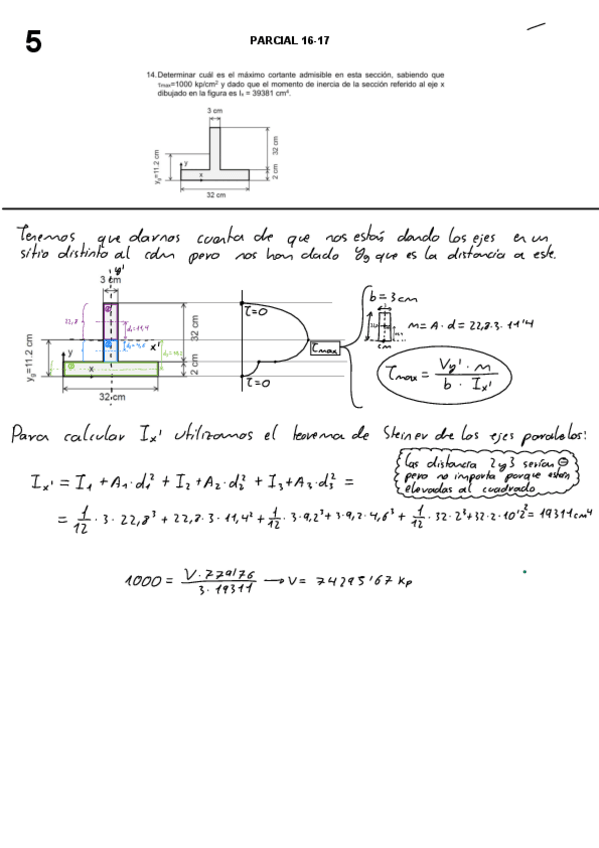 5
PARCIAL 16-17
14. Determinar cuál es el máximo cortante admisible en esta sección, sabiendo que
τmax=1000 kp/cm² y dado que el momento de inercia de la sección referido al eje x
dibujado en la figura es Ix = 39381 cm⁴.
3 cm
32 cm
2 cm
yg=11.2 cm
y
x
32 cm
Tenemos que darnos cuenta de que nos están dando los ejes en un
sitio distinto al cdm pero nos han dado Yg que es la distancia a este.
y'
3 cm
22,8
d₁=11,4
x'
32 cm
2 cm
yg=11.2 cm
y
x
32 cm
τ=0
τmax
τ=0
b=3cm
m= A·d = 22,8·3·11'4
cm
τmax = Vy'·m / b·Ix'
Para calcular Ix' utilizamos el teorema de Steiner de los ejes paralelos:
Las distancia 2 y 3 serían ⊖
pero no importa porque están
elevadas al cuadrado
Ix' = I₁ + A₁·d₁² + I₂ + A₂·d₂² + I₃ + A₃·d₃² =
= 1/12 · 3 · 22,8³ + 22,8·3·11,4² + 1/12 · 3·9,2³ + 3·9,2·4,6³ + 1/12 · 32·2³ + 32·2·10'2² = 19311 cm⁴
1000 = V·779'76 / 3·19311 → V = 74295'67 kp